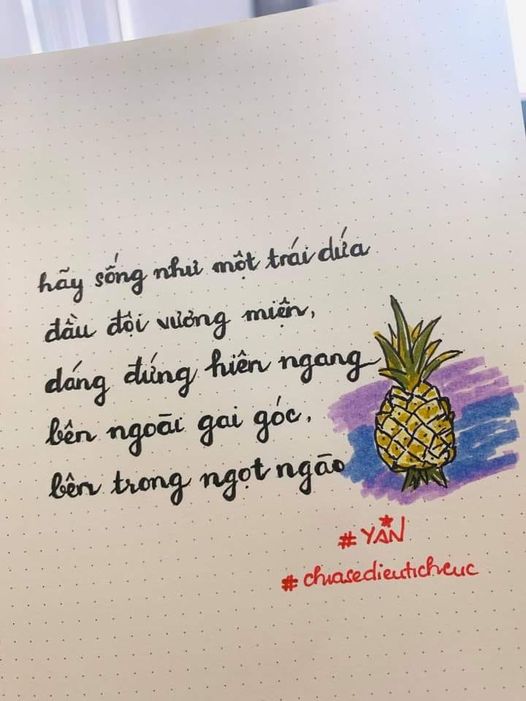 hãy sống như một trái dứa
đầu đội vương miện,
dáng đứng hiên ngang
bên ngoài gai góc,
bên trong ngọt ngào
#YAN
#chiasedieutichcuc